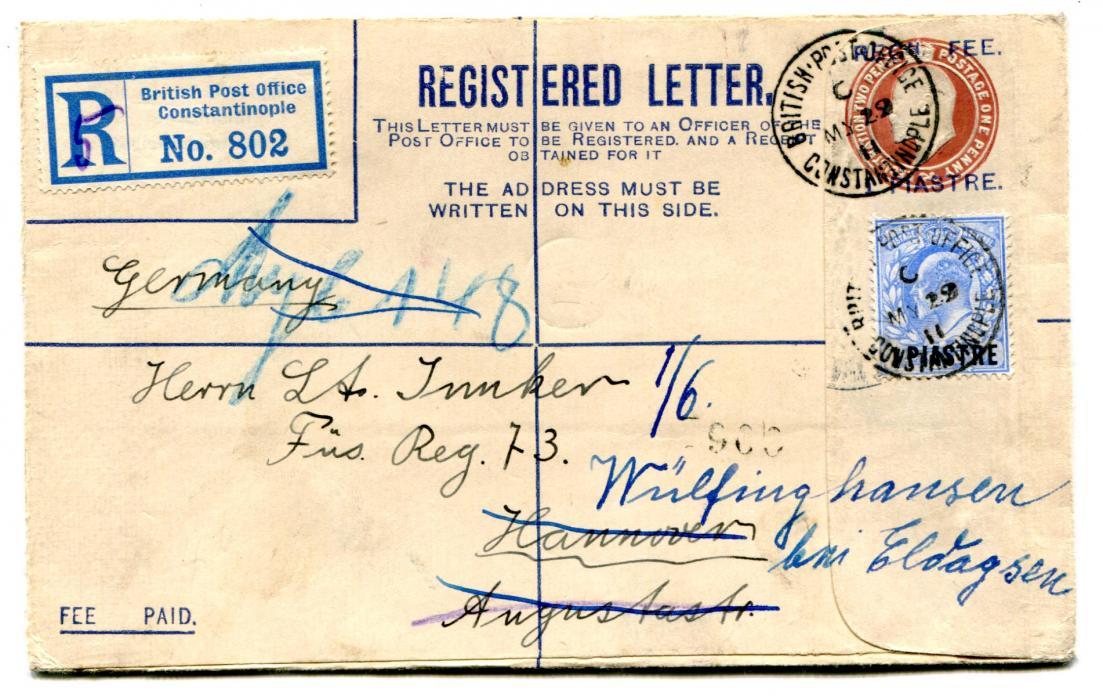 R
British Post Office
Constantinople
No. 802
5
REGISTERED LETTER.
THIS LETTER MUST BE GIVEN TO AN OFFICER OF THE
POST OFFICE TO BE REGISTERED. AND A RECEIPT
OBTAINED FOR IT
THE ADDRESS MUST BE
WRITTEN ON THIS SIDE.
REGN. FEE.
POSTAGE ONE PENNY
PIASTRE.
BRITISH POST OFFICE
C
MY 22
11
CONSTANTINOPLE
POST OFFICE
C
MY 22
11
CONSTANTINOPLE
1 PIASTRE
Germany
148
Herrn Lt. Junker
Füs. Reg. 73.
1/6.
Wülfinghausen
Hannover
bei Eldagsen
Augustastr.
FEE PAID.